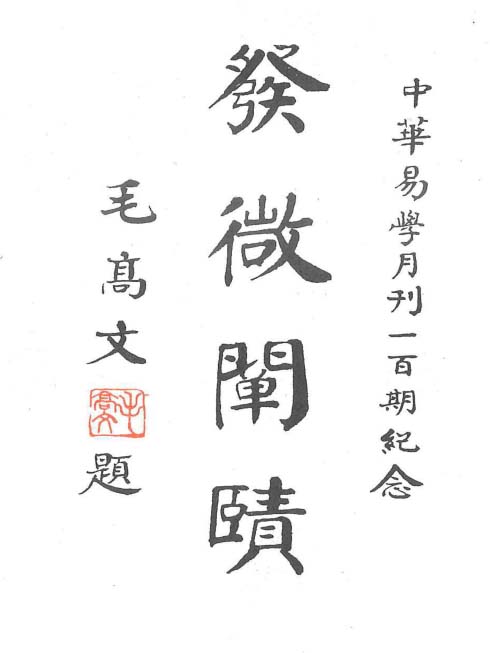 中華易學月刊一百期紀念
發微闡賾
毛髙文題